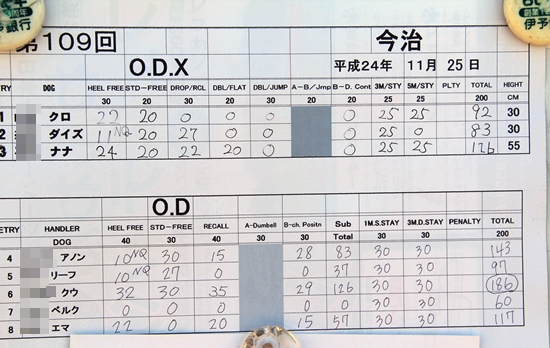 第109回 今治
O.D.X 平成24年 11月 25日
ETRY DOG HEEL FREE STD-FREE DROP/RCL DBL/FLAT DBL/JUMP A-B/Jmp B-D. Cont 3M/STY 5M/STY PLTY TOTAL HIGHT
30 20 30 20 20 20 20 25 25 200 CM
1 クロ 22 20 0 0 0 0 25 25 92 30
2 ダイズ 11NQ 20 27 0 0 0 25 0 83 30
3 ナナ 24 20 22 20 0 0 25 25 126 55
O.D
ETRY HANDLER HEEL FREE STD-FREE RECALL A-Dumbell B-ch. Positn Sub 1M.S.STAY 3M.D.STAY PENALTY TOTAL
DOG 40 30 40 30 30 Total 30 30 200
4 アノン 10NQ 30 15 28 83 30 30 143
5 リーフ 10NQ 27 0 0 37 30 30 97
6 クウ 32 30 35 29 126 30 30 186
7 ベルク 0 0 0 0 0 30 30 60
8 エマ 22 0 20 15 57 30 30 117